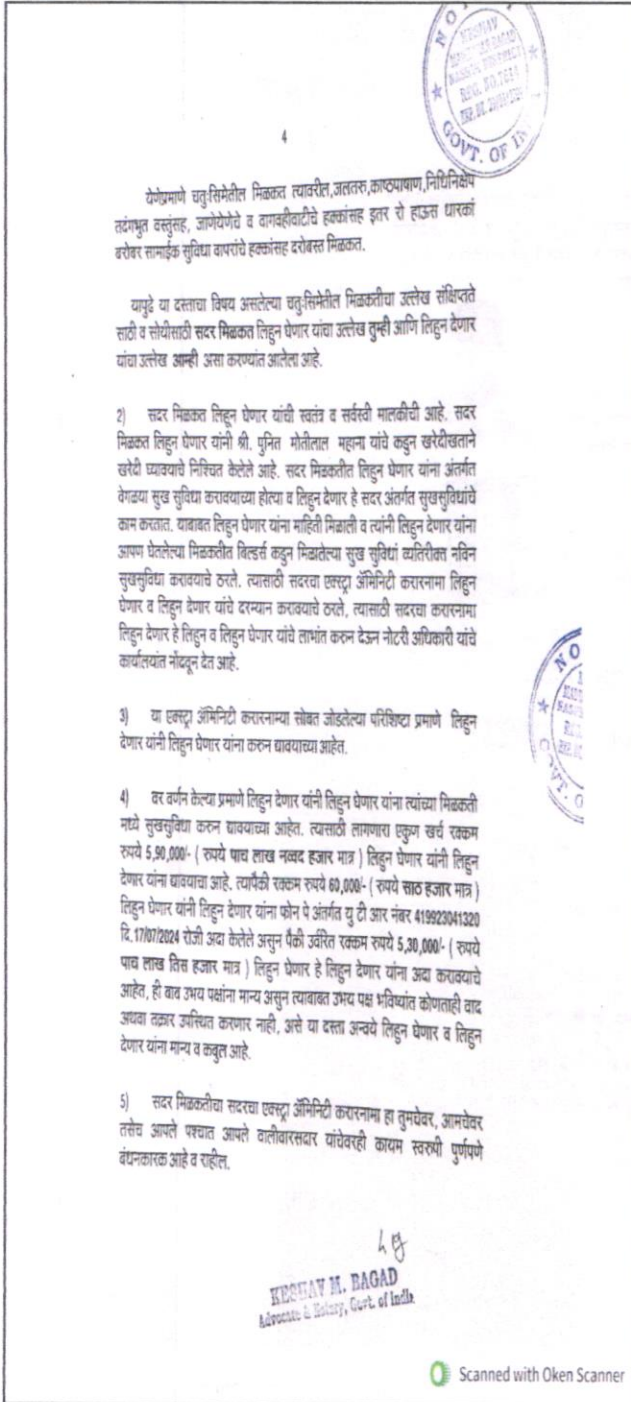 NO
KESHAV
REG. NO. 7624
GOVT. OF IN
4
येणेप्रमाणे चतुःसिमेतील मिळकत त्यावरील,जलतरु,काष्ठपाषाण,निधिनिक्षेप
तदंगभुत वस्तुंसह, जाणेयेणेचे व वागवहीवाटीचे हक्कांसह इतर रो हाऊस धारकां
बरोबर सामाईक सुविधा वापरांचे हक्कांसह दरोबस्त मिळकत.
यापुढे या दस्ताचा विषय असलेल्या चतुःसिमेतील मिळकतीचा उल्लेख संक्षिप्तते
साठी व सोयीसाठी सदर मिळकत लिहुन घेणार यांचा उल्लेख तुम्ही आणि लिहुन देणार
यांचा उल्लेख आम्ही असा करण्यांत आलेला आहे.
2) सदर मिळकत लिहून घेणार यांची स्वतंत्र व सर्वस्वी मालकीची आहे. सदर
मिळकत लिहुन घेणार यांनी श्री. पुनित मोतीलाल महाना यांचे कडुन खरेदीखताने
खरेदी घ्यावयाचे निश्चित केलेले आहे. सदर मिळकतीत लिहुन घेणार यांना अंतर्गत
वेगळया सुख सुविधा करावयाच्या होत्या व लिहुन देणार हे सदर अंतर्गत सुखसुविधांचे
काम करतात. याबाबत लिहुन घेणार यांना माहिती मिळाली व त्यांनी लिहुन देणार यांना
आपण घेतलेल्या मिळकतीत बिल्डर्स कडुन मिळालेल्या सुख सुविधां व्यतिरीक्त नविन
सुखसुविधा करावयाचे ठरले. त्यासाठी सदरचा एक्स्ट्रा ॲमिनिटी करारनामा लिहुन
घेणार व लिहुन देणार यांचे दरम्यान करावयाचे ठरले, त्यासाठी सदरचा करारनामा
लिहुन देणार हे लिहुन व लिहुन घेणार यांचे लाभांत करुन देऊन नोटरी अधिकारी यांचे
कार्यालयांत नोंदवून देत आहे.
NO
3) या एक्स्ट्रा ॲमिनिटी करारनाम्या सोबत जोडलेल्या परिशिष्टा प्रमाणे लिहुन
देणार यांनी लिहुन घेणार यांना करुन द्यावयाच्या आहेत.
4) वर वर्णन केल्या प्रमाणे लिहुन देणार यांनी लिहुन घेणार यांना त्यांच्या मिळकती
मध्ये सुखसुविधा करुन द्यावयाच्या आहेत. त्यासाठी लागणारा एकुण खर्च रक्कम
रुपये 5,90,000/- ( रुपये पाच लाख नव्वद हजार मात्र ) लिहुन घेणार यांनी लिहुन
देणार यांना द्यावयाचा आहे. त्यापैकी रक्कम रुपये 60,000/- ( रुपये साठ हजार मात्र )
लिहुन घेणार यांनी लिहुन देणार यांना फोन पे अंतर्गत यु टी आर नंबर 419923041320
दि. 17/07/2024 रोजी अदा केलेले असुन पैकी उर्वरित रक्कम रुपये 5,30,000/- ( रुपये
पाच लाख तिस हजार मात्र ) लिहुन घेणार हे लिहुन देणार यांना अदा करावयाचे
आहेत, ही बाब उभय पक्षांना मान्य असुन त्याबाबत उभय पक्ष भविष्यांत कोणताही वाद
अथवा तक्रार उपस्थित करणार नाही, असे या दस्ता अन्वये लिहुन घेणार व लिहुन
देणार यांना मान्य व कबुल आहे.
5) सदर मिळकतीचा सदरचा एक्स्ट्रा ॲमिनिटी करारनामा हा तुमचेवर, आमचेवर
तसेच आपले पश्चात आपले वालीवारसदार यांचेवरही कायम स्वरुपी पुर्णपणे
बंधनकारक आहे व राहील.
KESHAV M. BAGAD
Advocate & Notary, Govt. of India
Scanned with Oken Scanner